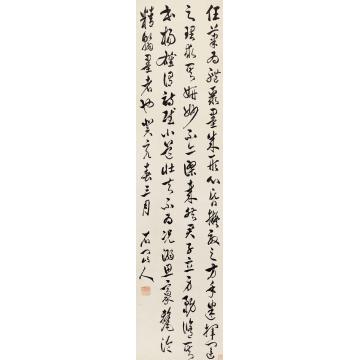 任筆為體聚墨成形心昏擬效之方手迷揮運
之理求其妍妙不亦謬哉然君子立身務修其
本揚雄謂詩賦小道壯夫不為況溺思豪氂淪
精翰墨者也癸亥春三月 石人